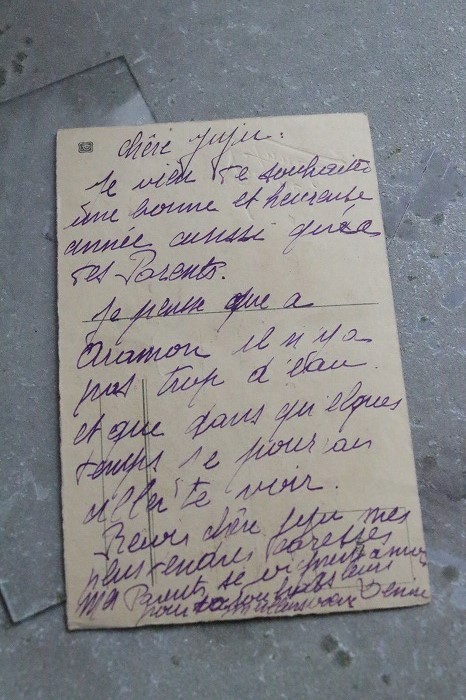 chère Juju :
Je vien te souhaité
une bonne et heureuse
année aussi qu'à
tes Parents.
Je pense que a
Aramon il n'y a
pas trop d'eau
et que dans qu'elques
temps je pourai
aller te voir.
Reçois chère Juju mes
plus tendres caresses
Ma Parents se joignent a moi
pour leurs
Denise